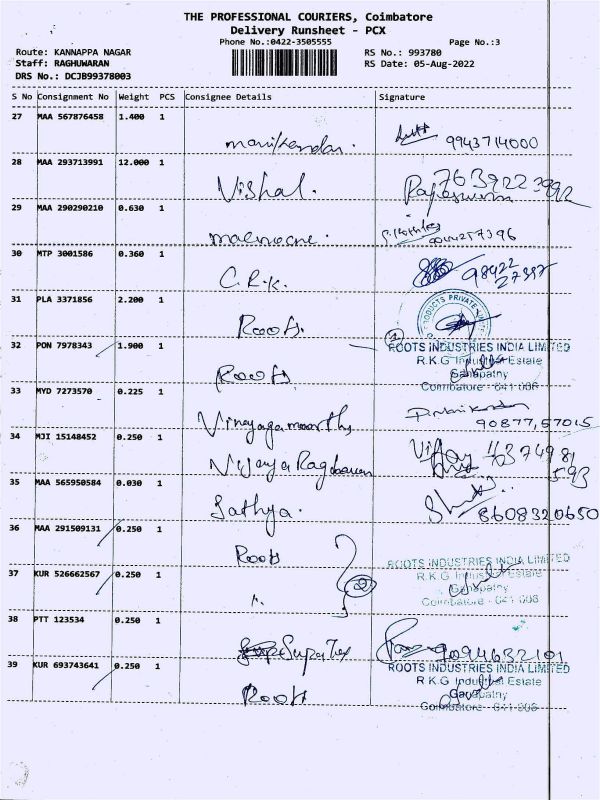 THE PROFESSIONAL COURIERS, Coimbatore
Delivery Runsheet - PCX
Phone No.:0422-3505555 Page No.:3
Route: KANNAPPA NAGAR RS No.: 993780
Staff: RAGHUWARAN RS Date: 05-Aug-2022
DRS No.: DCJB99378003
S No Consignment No Weight PCS Consignee Details Signature
27 MAA 567876458 1.400 1
manikandan. 9943714000
28 MAA 293713991 12.000 1
Vishal.
29 MAA 290290210 0.630 1
30 MTP 3001586 0.360 1
C.R.K. 98422
31 PLA 3371856 2.200 1
PRODUCTS PRIVATE
Roots.
32 PON 7978343 1.900 1
ROOTS INDUSTRIES INDIA LIMITED
R.K.G Industrial Estate
Roots Ganapathy
Coimbatore - 641 006
33 MYD 7273570 0.225 1
Vinayagamoorthy 90877,57015
34 MJI 15148452 0.250 1
Vijaya Ragbavan Vijay
35 MAA 565950584 0.030 1
Sathya. 8608320650
36 MAA 291509131 0.250 1
Roots
ROOTS INDUSTRIES INDIA LIMITED
37 KUR 526662567 0.250 1
R.K.G Industrial Estate
Ganapathy
Coimbatore - 641 006
38 PTT 123534 0.250 1
Supa Tex 9094632101
39 KUR 693743641 0.250 1
ROOTS INDUSTRIES INDIA LIMITED
R.K.G Industrial Estate
Roots Ganapathy
Coimbatore - 641 006